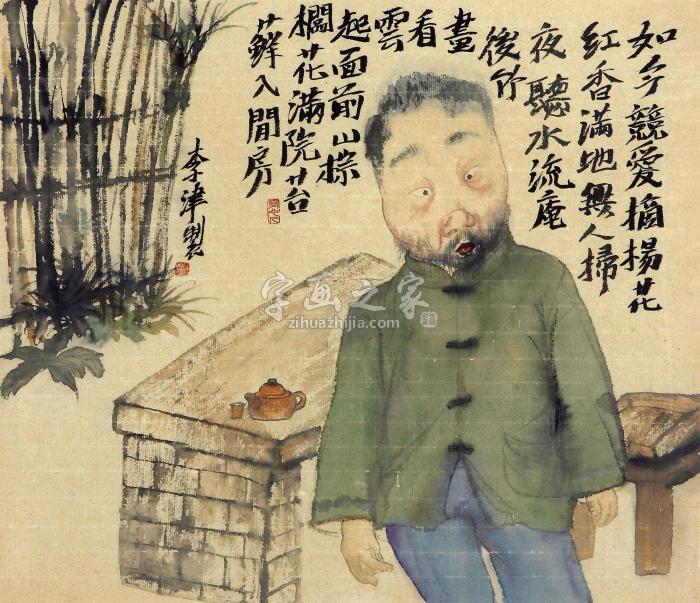 如今競愛摘楊花
红香满地無人掃
夜聽水流庵
後竹
畫
看
雲
起面前山棕
櫚花满院苔
蘚入閒房
李津製
字画之家
zihuazhijia.com